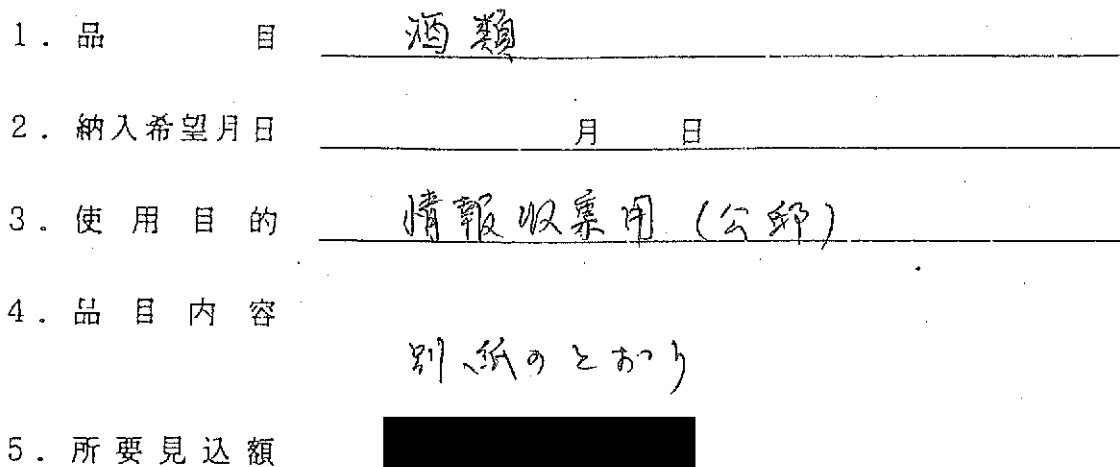 1．品目 酒類
2．納入希望月日 月 日
3．使用目的 情報収集用（公邸）
4．品目内容
別紙のとおり
5．所要見込額